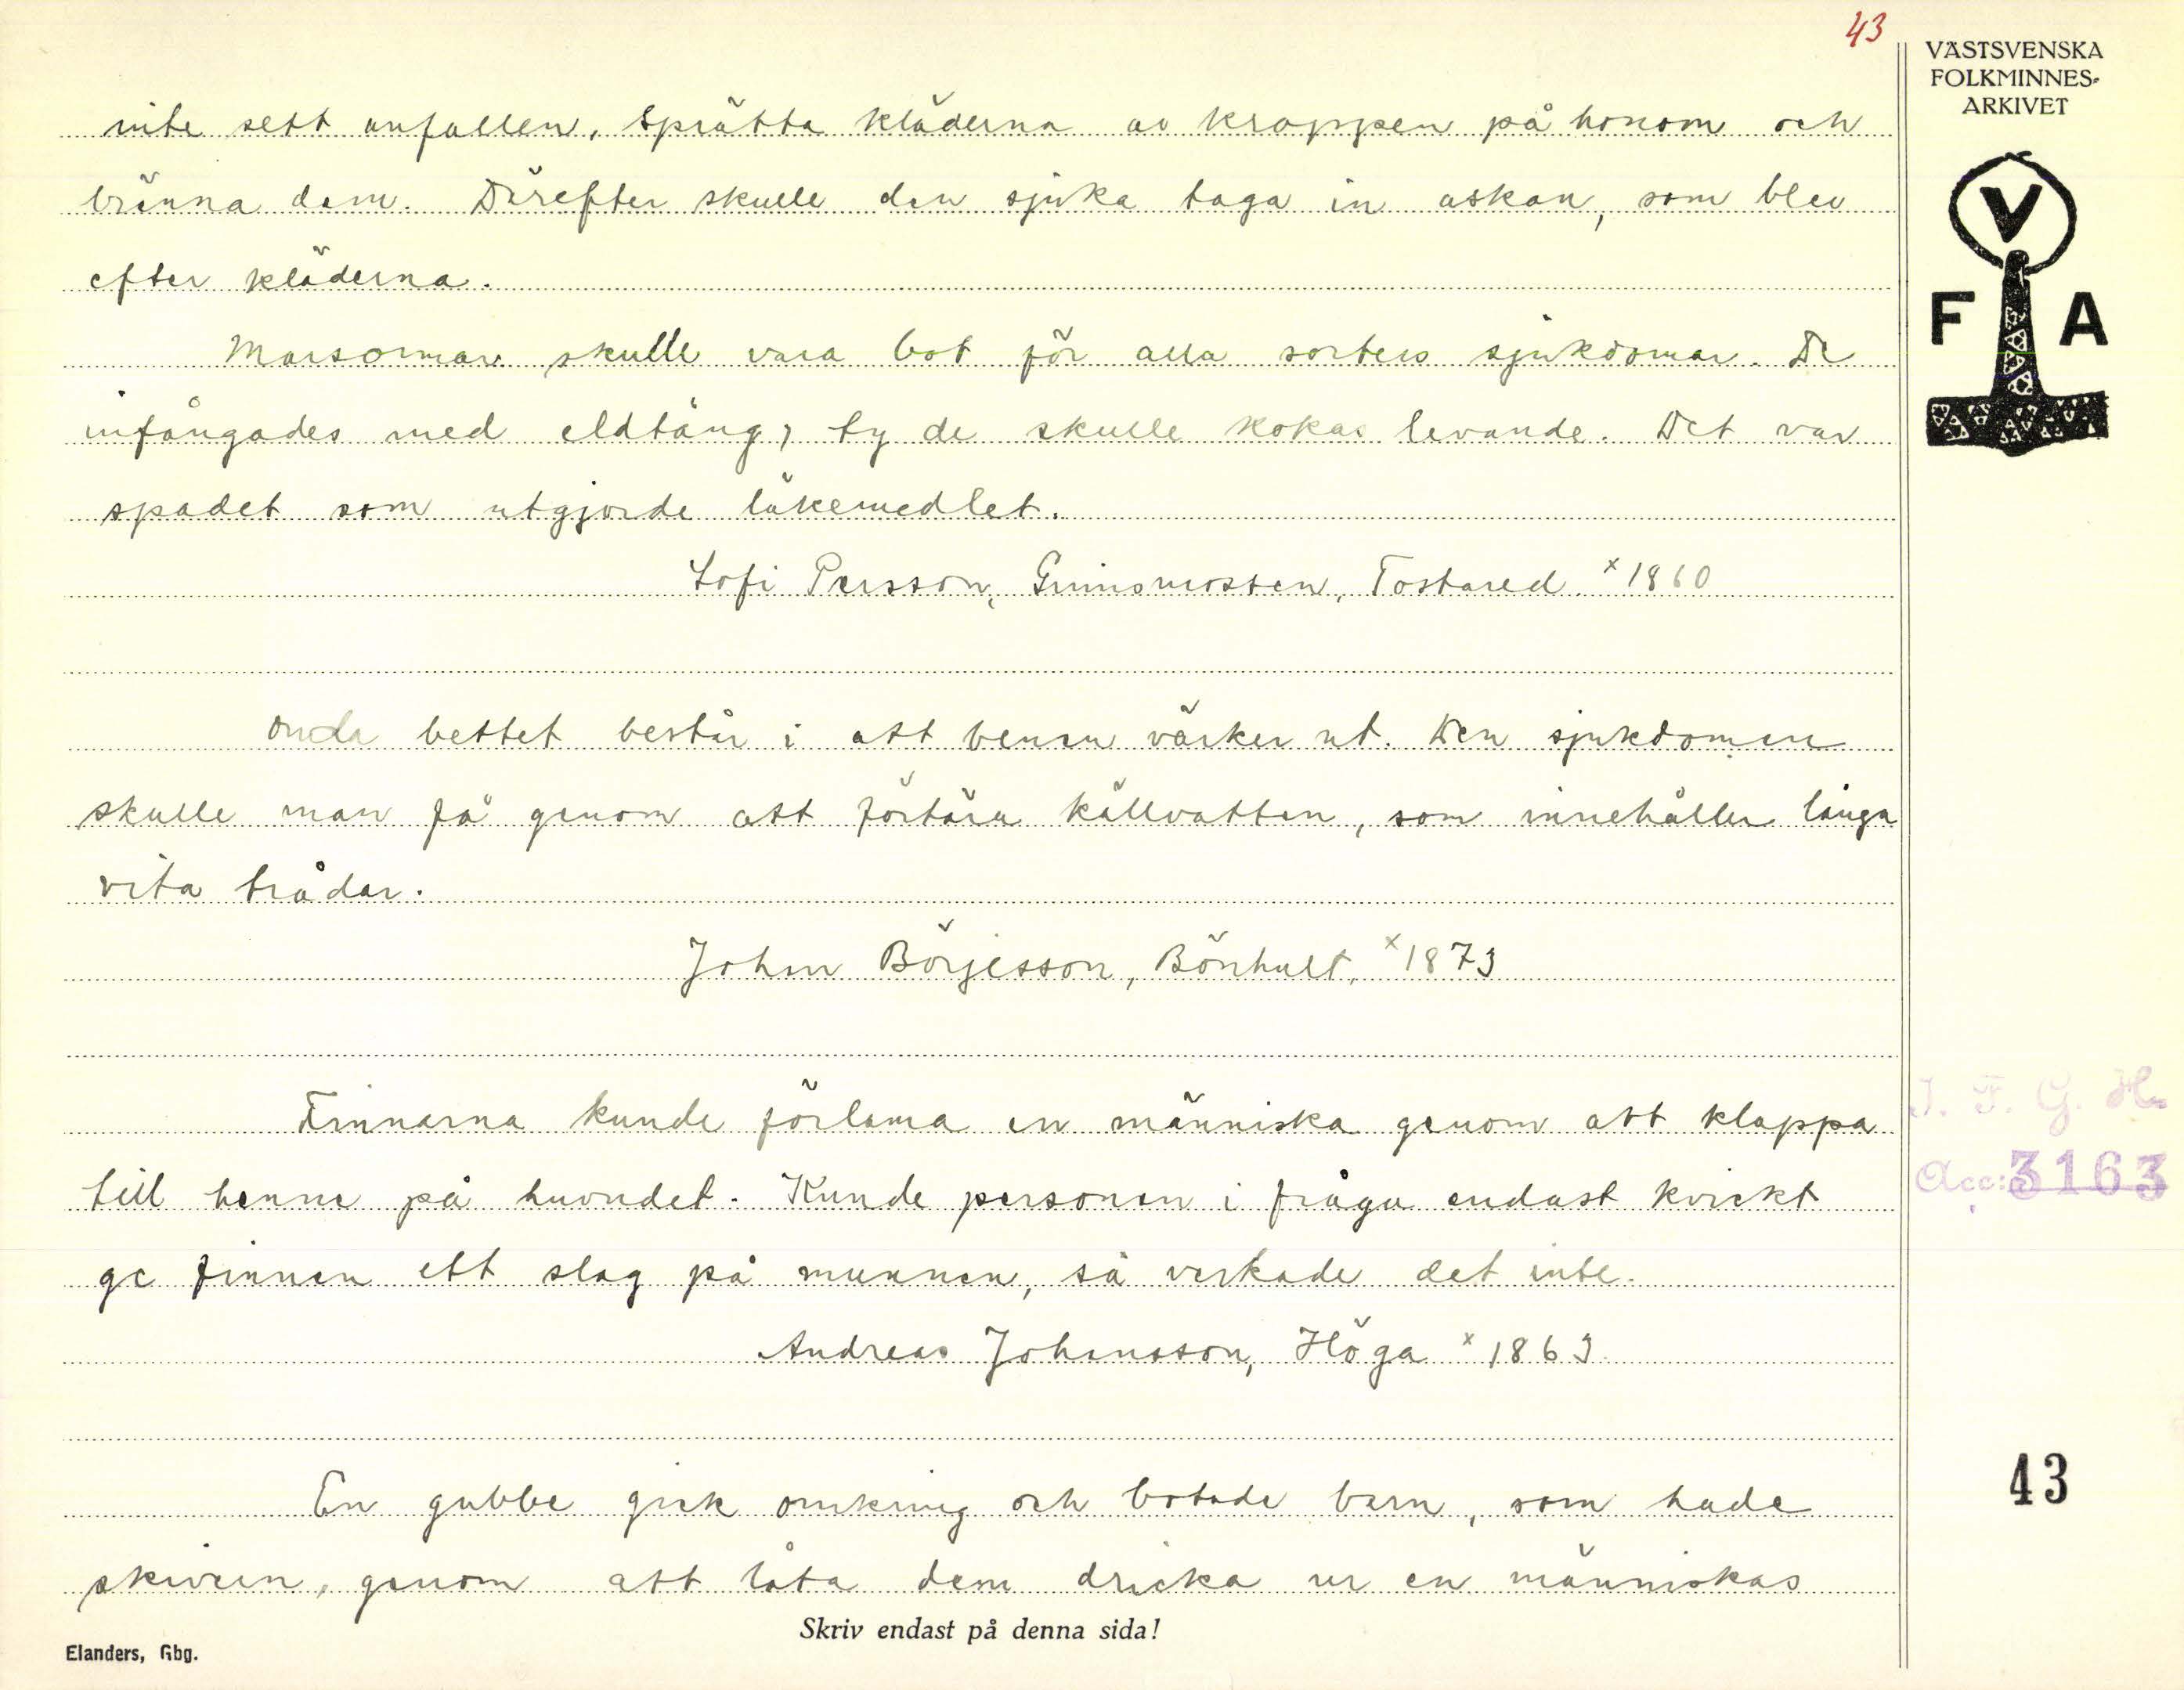 43
VÄSTSVENSKA
FOLKMINNES-
ARKIVET
V
F A
inte sett anfallen, sprätta kläderna av kroppen på honom och
bränna dem. Därefter skulle den sjuka taga in askan, som blev
efter kläderna.
Marsormar skulle vara bot för alla sorters sjukdomar. De
infångades med eldtång, ty de skulle kokas levande. Det var
spadet som utgjorde läkemedlet.
Sofi Persson, Grimsmosten, Tostared. x 1860
Onda bettet består i att benen värker ut. Den sjukdomen
skulle man få genom att förtära källvatten, som innehåller långa
vita trådar.
John Börjesson, Bönhult, x 1873
Finnarna kunde förlama en människa genom att klappa
till henne på huvudet. Kunde personen i fråga endast kvickt
ge finnen ett slag på munnen, så verkade det inte.
Andreas Johansson, Höga x 1863
En gubbe gick omkring och botade barn, som hade
skivern, genom att låta dem dricka ur en människas
I. F. G. H.
Acc: 3163
43
Skriv endast på denna sida!
Elanders, Gbg.